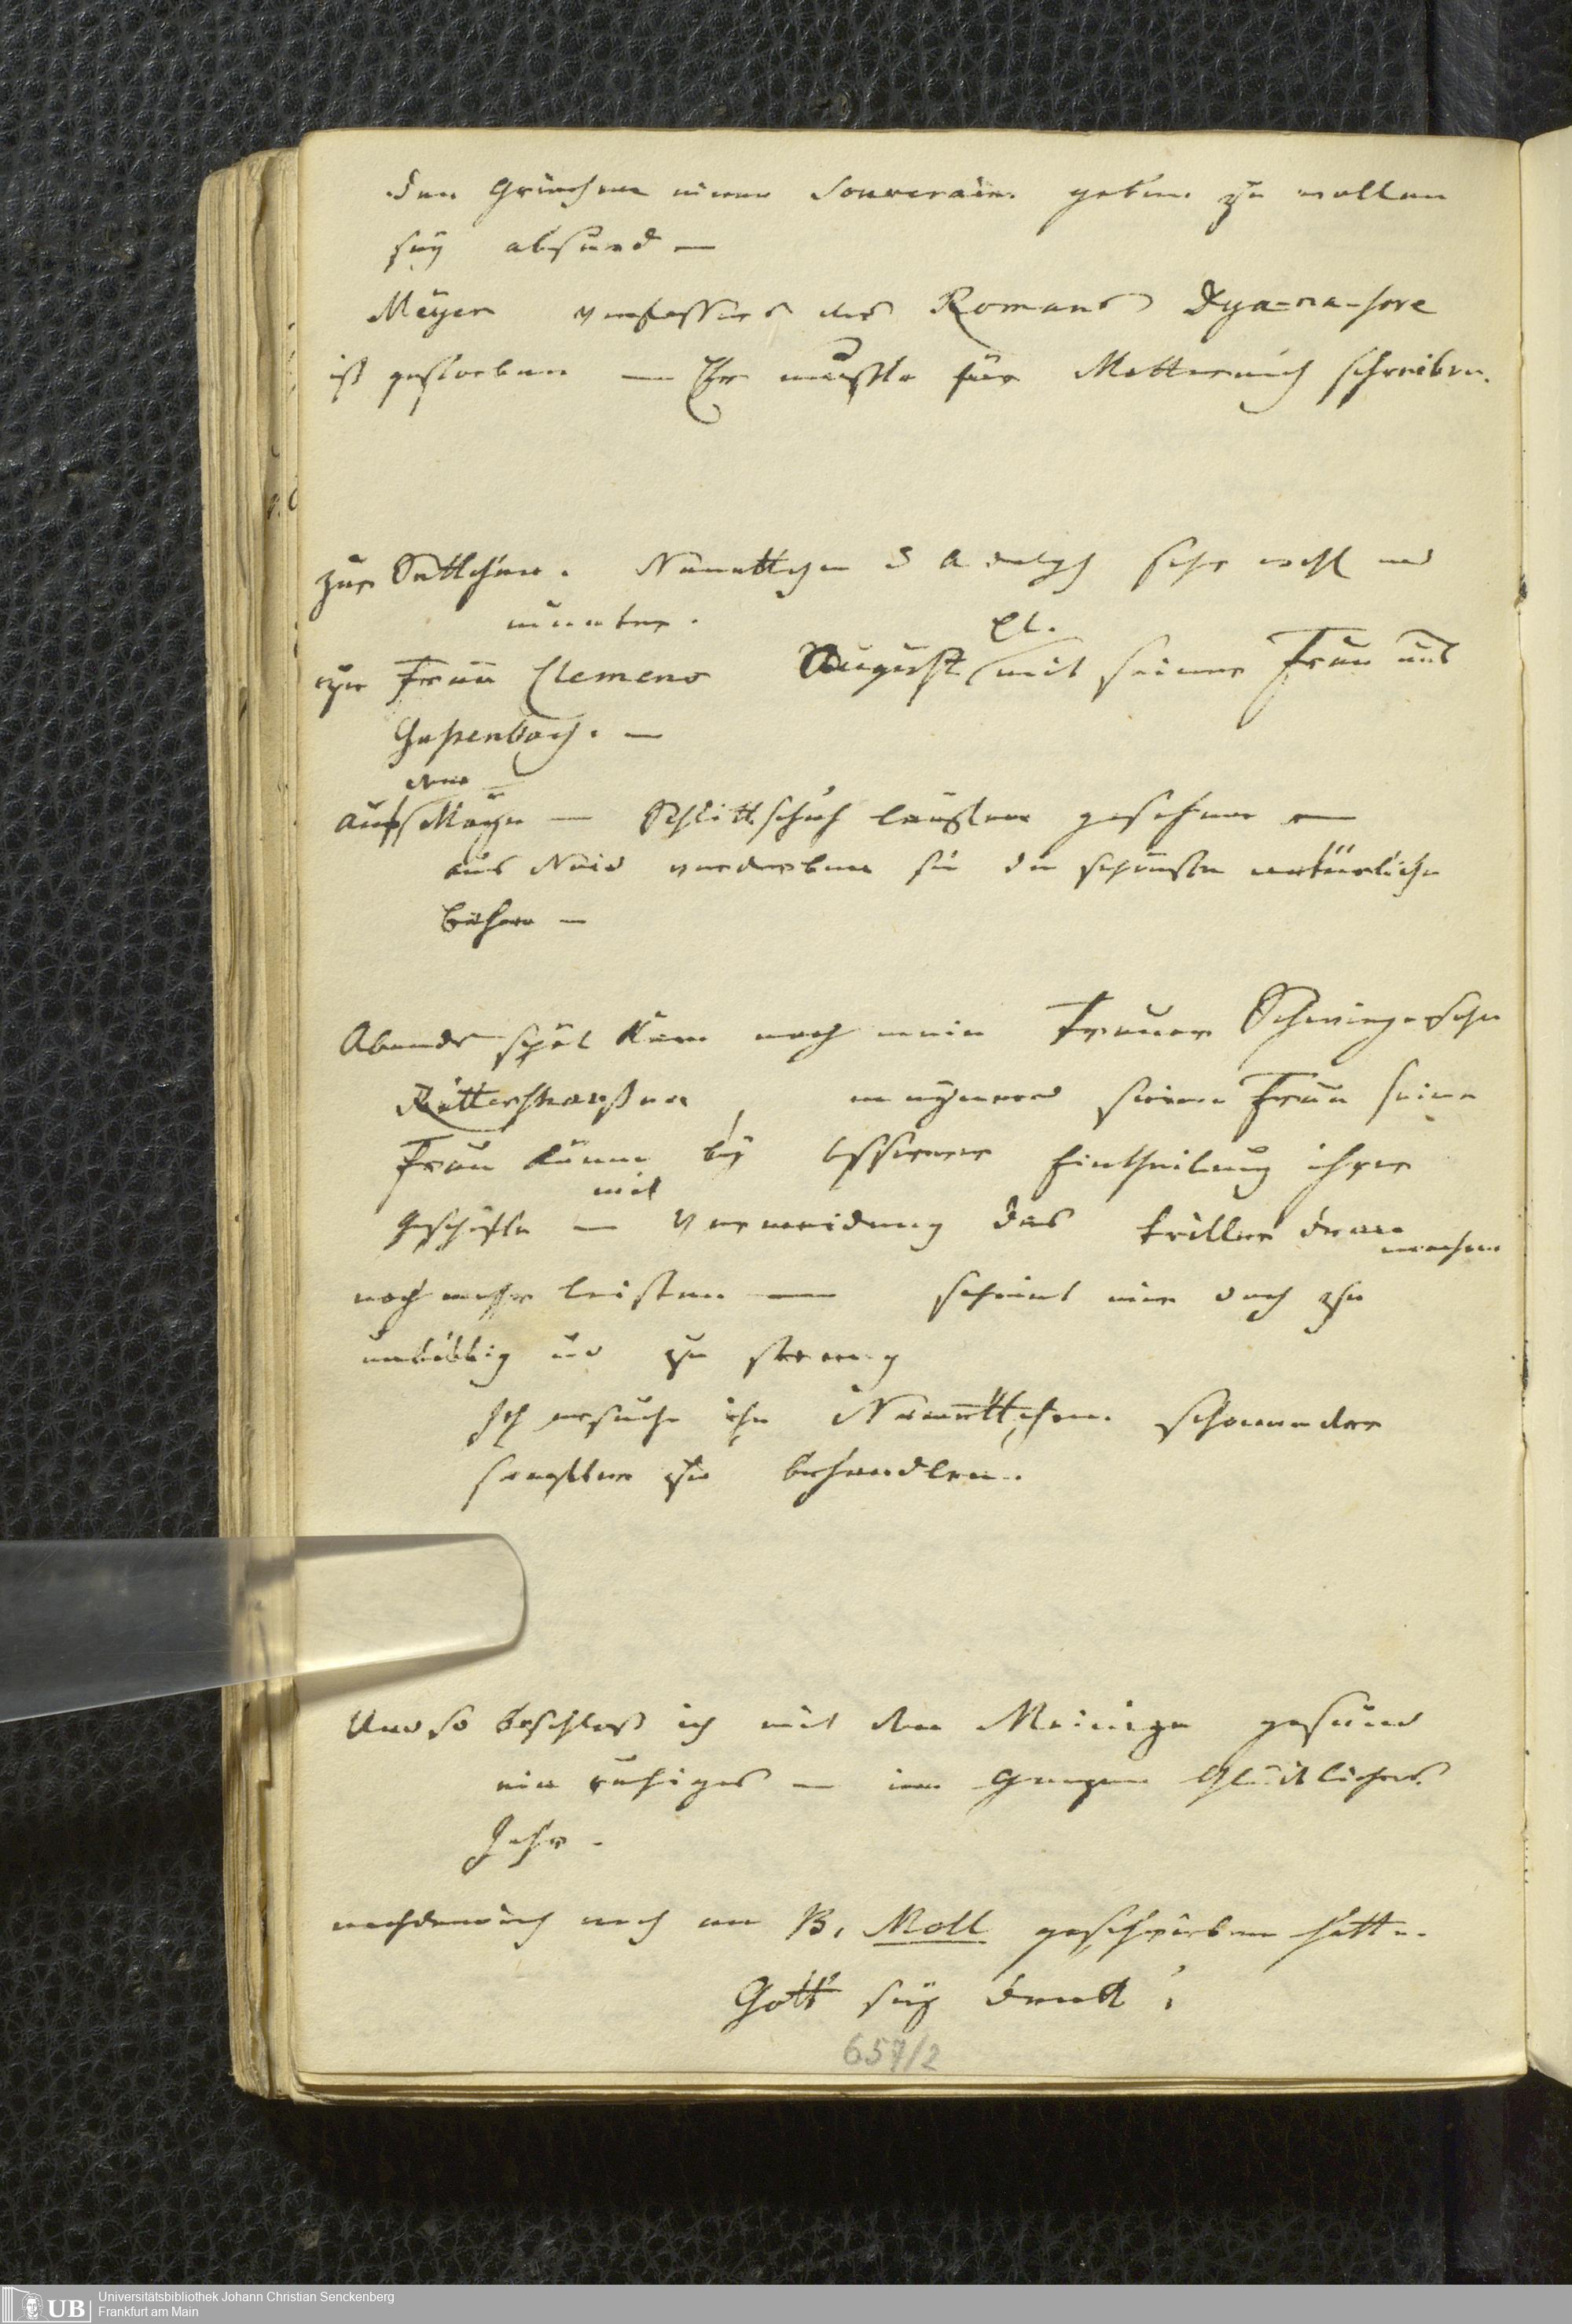 den Griechen einen Souverain geben zu wollen
sey absurd —
Meyer Verfasser des Romans Dya-na-sore
ist gestorben — Er musste für Metternich schreiben.
zur Settchen. Nannettchen & Adolph sehr wohl und
munter.
zu Frau Clemens August Cl. mit seiner Frau und
Gussenbach. —
auf dem Mayn — Schlittschuh laufen gesehen —
aus Neid verderben sie die schönste natürliche
Bahn —
Abends spät kam noch mein Schwiegersohn
Rittershaußen, seine
Frau könne bey besserer Eintheilung ihrer
Geschäfte — mit Vermeidung des
noch mehr leisten — scheint mir doch zu
unbillig und zu streng
Ich ersuche ihn Nannettchen schonender
sanfter zu behandlen.
Und so beschloß ich mit den Meinigen gesund
ein ruhiges — im Ganzen Glückliches
Jahr.
nachdem ich noch an B. Moll geschrieben hatte.
Gott sey Dank!
657/2
UB
Universitätsbibliothek Johann Christian Senckenberg
Frankfurt am Main